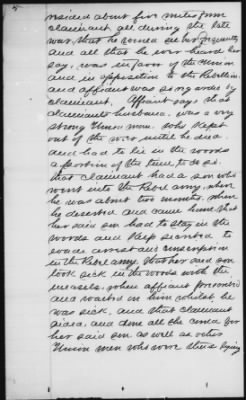 resided about five miles from
claimant all during the late
war, that he visited her frequently
and all that he ever heard her
say, was in favor of the Union
and in opposition to the Rebellion
and affiant was song order by
claimant. Affiant says that
claimants husband, was a very
strong Union man. Who kept
out of the war until he died.
and had to lie in the woods
a portion of the time, to do so.
that claimant had a son who
went into the Rebel army, where
he was about two months, when
he deserted and came home, that
her said son had to stay in the
woods and keep secreted to
evade arrest and conscription
in the Rebel army, that her said son
took sick in the woods with the
measels, when affiant
and waited on him whilst he
was sick, and that claimant
aided, and done all she could for
her said son as well as other
Union men who were there lying